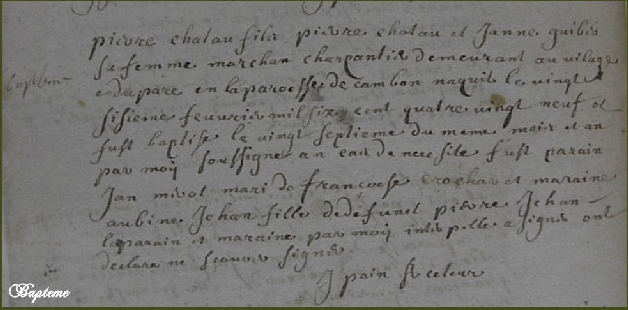 pierre chatau fils pierre chatau et Janne guibir
baptême
sa femme marchan charpantier demeurant au vilage
du pare en la paroesse de cambon naquis le vingt
sisieme feuvrier mil six cent quatre vingt neuf et
fust baptise le vingt septieme du meme mois et an
par moy soussigne an cas de necesite fust parain
Jan mivot mari de francoise crochar et maraine
aubine Jehan fille de defunct pierre Jehan
le parain et maraine par moy interpelle a signer ont
declare ne scavoir signer
J pain
Bapteme